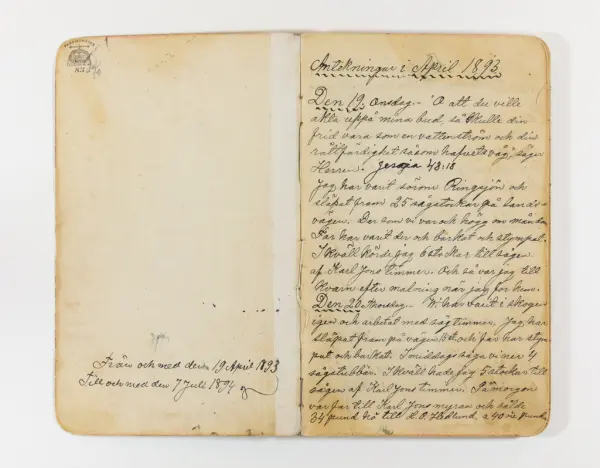 Från och med den 19 April 1893
Till och med den 7 Juli 1894
Antekningar i April 1893
Den 19. Onsdag. - O att du ville
akta uppå mina bud, så skulle din
frid vara som en vattenström och din
rättfärdighet såsom hafvets våg, säger
Herren. Jesaja 48:18
Jag har varit sörom Ringsjön och
släpat fram 25 sågstockar på lands-
vägen. Der som vi var och högg om måndan.
Far har varit der och barkat och stympat.
I kväll körde jag 6 stockar till sågen
af Karl Jons timmer. Och så var jag till
kvarn efter malning när jag for hem.
Den 20. Thorsdag. - Vi har varit i skogen
igen och arbetat med sågtimmer. Jag har
släpat fram på vägen 15 st. och far har stym-
pat och barkat. I middags såga vi ner 4
sågstubbar. I kväll hade jag 5 stockar till
sågen af Karl Jons timmer. På morgon
var far till Karl Jons myran och sålde
34 pund hö till K. O. Hedlund, a 40 öre pundet